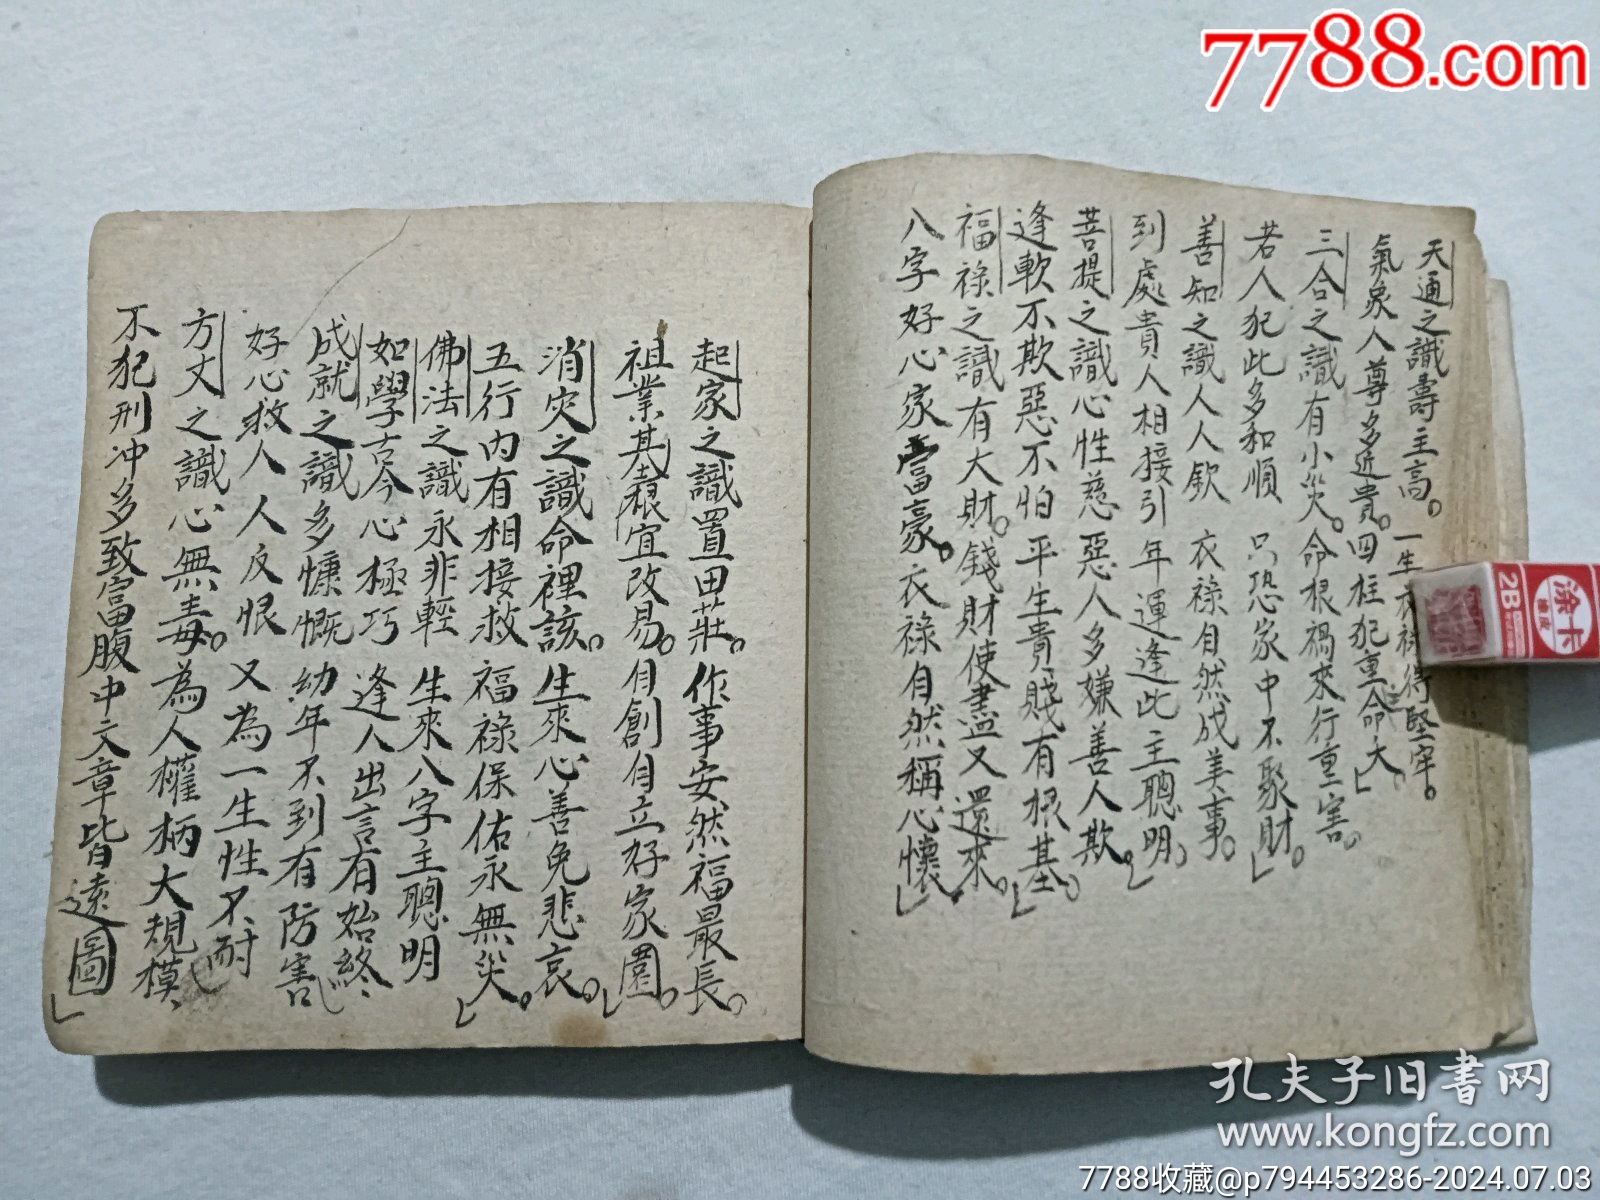 7788.com
天通之識壽主高。一生衣祿得堅牢。
氣象人尊多近貴。四柱犯重命大。
三合之識有小災。命根禍來行重害。
若人犯此多和順 只恐家中不聚財。
善知之識人人欽 衣祿自然成美事。
到處貴人相接引 年運逢此主聰明。
菩提之識心性慈 惡人多嫌善人欺。
逢軟不欺惡不怕 平生貴賤有根基。
福祿之識有大財。錢財使盡又還來。
八字好心家富豪。衣祿自然稱心懷
起家之識置田莊。作事安然福最長。
祖業基宜改易。自創自立好家園。
消灾之識命裡該。生來心善免悲哀。
五行内有相接救 福祿保佑永無災。
佛法之識永非輕 生來八字主聰明
如學古今心極巧 逢人出言有始終
成就之識多慷慨 幼年不到有防害
好心救人人反恨 又為一生性不耐
方丈之識心無毒。為人權柄大規模
不犯刑冲多致富腹中文章皆遠圖
2B
涂卡
孔夫子旧书网
www.kongfz.com
7788收藏@p794453286-2024.07.03